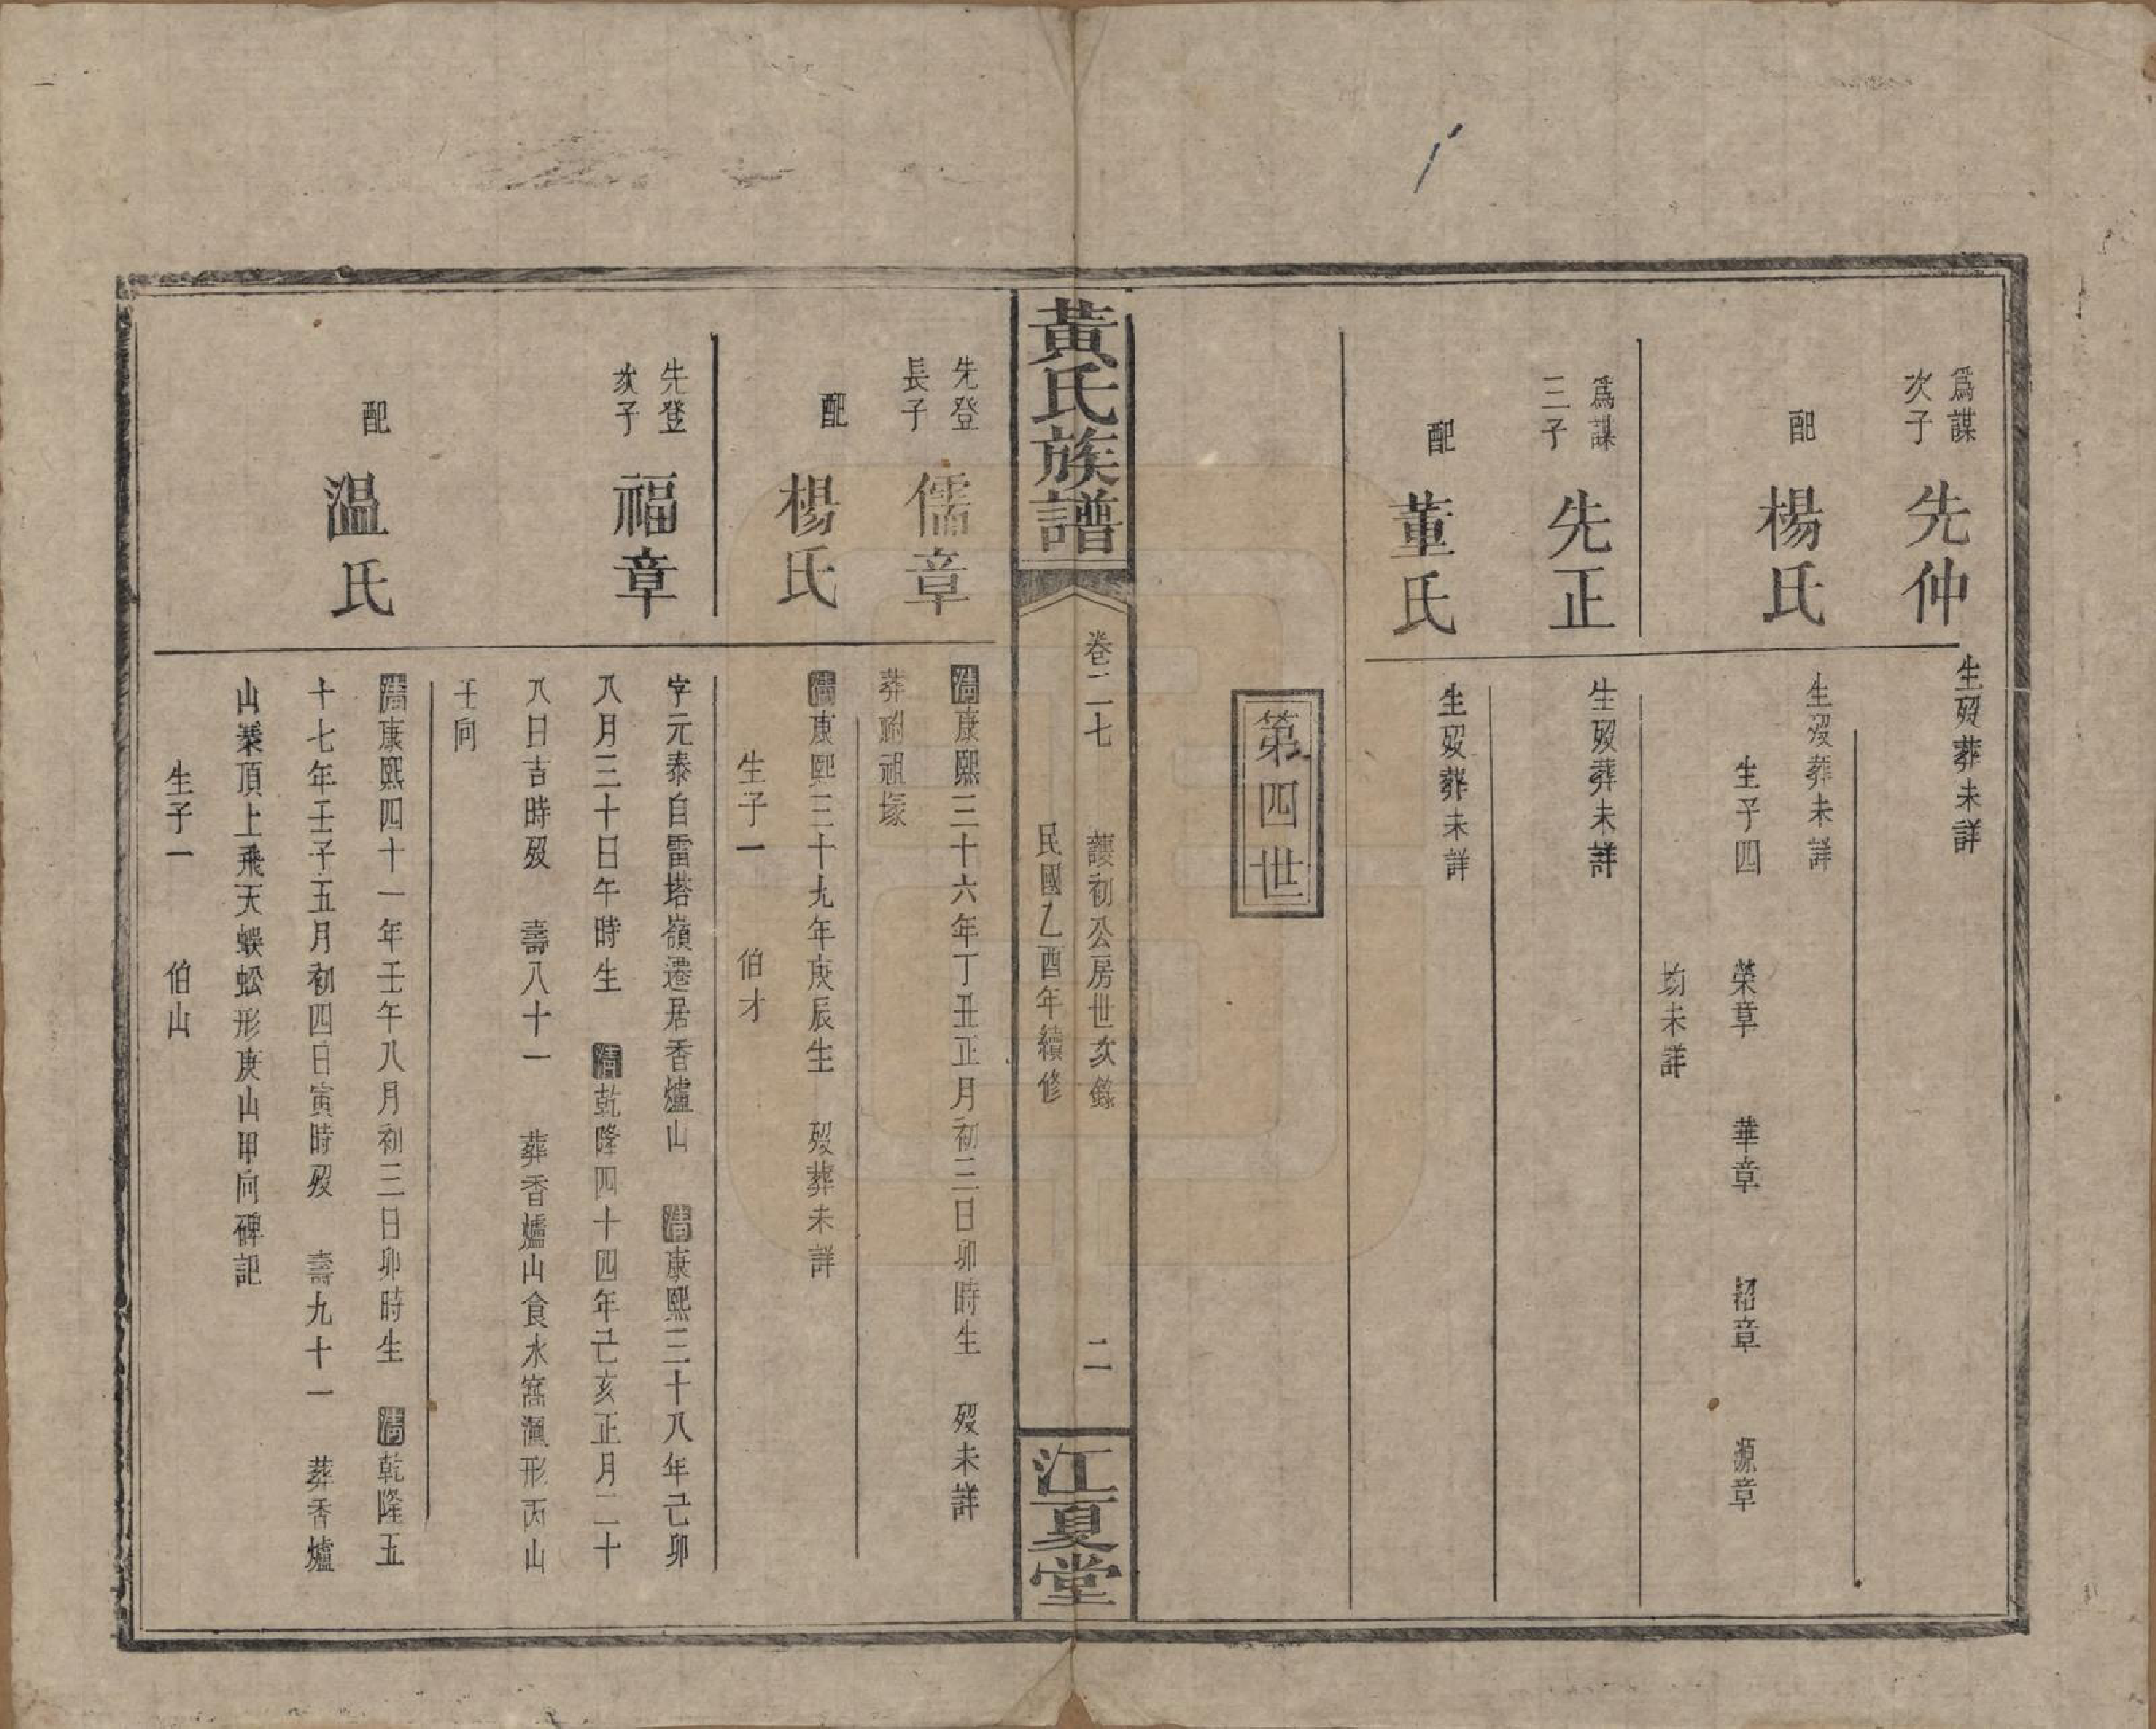 爲謀次子 先仲
生歿葬未詳
配 楊氏
生歿葬未詳
生子四 榮章 華章 紹章 源章
均未詳
爲謀三子 先正
生歿葬未詳
配 董氏
生歿葬未詳
第四世
黃氏族譜
卷二七 護初公房世次錄 二
民國乙酉年續修
江夏堂
先登長子 儒章
清康熙三十六年丁丑正月初三日卯時生 歿未詳
葬祔祖塚
配 楊氏
清康熙三十九年庚辰生 歿葬未詳
生子一 伯才
先登次子 福章
字元泰自雷塔嶺遷居香爐山 清康熙三十八年己卯
八月三十日午時生 清乾隆四十四年己亥正月二十
八日吉時歿 壽八十一 葬香爐山食水窩形丙山
壬向
配 溫氏
清康熙四十一年壬午八月初三日卯時生 清乾隆五
十七年壬子五月初四日寅時歿 壽九十一 葬香爐
山寨頂上飛天蜈蚣形庚山甲向碑記
生子一 伯山